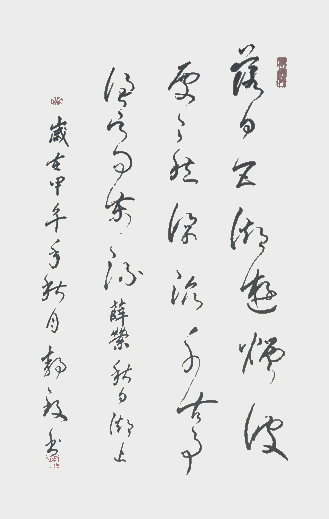 落日五湖遊煙波
處處愁浮沉千古事
誰與問東流 薛瑩秋日湖上
歲在甲午年秋月書